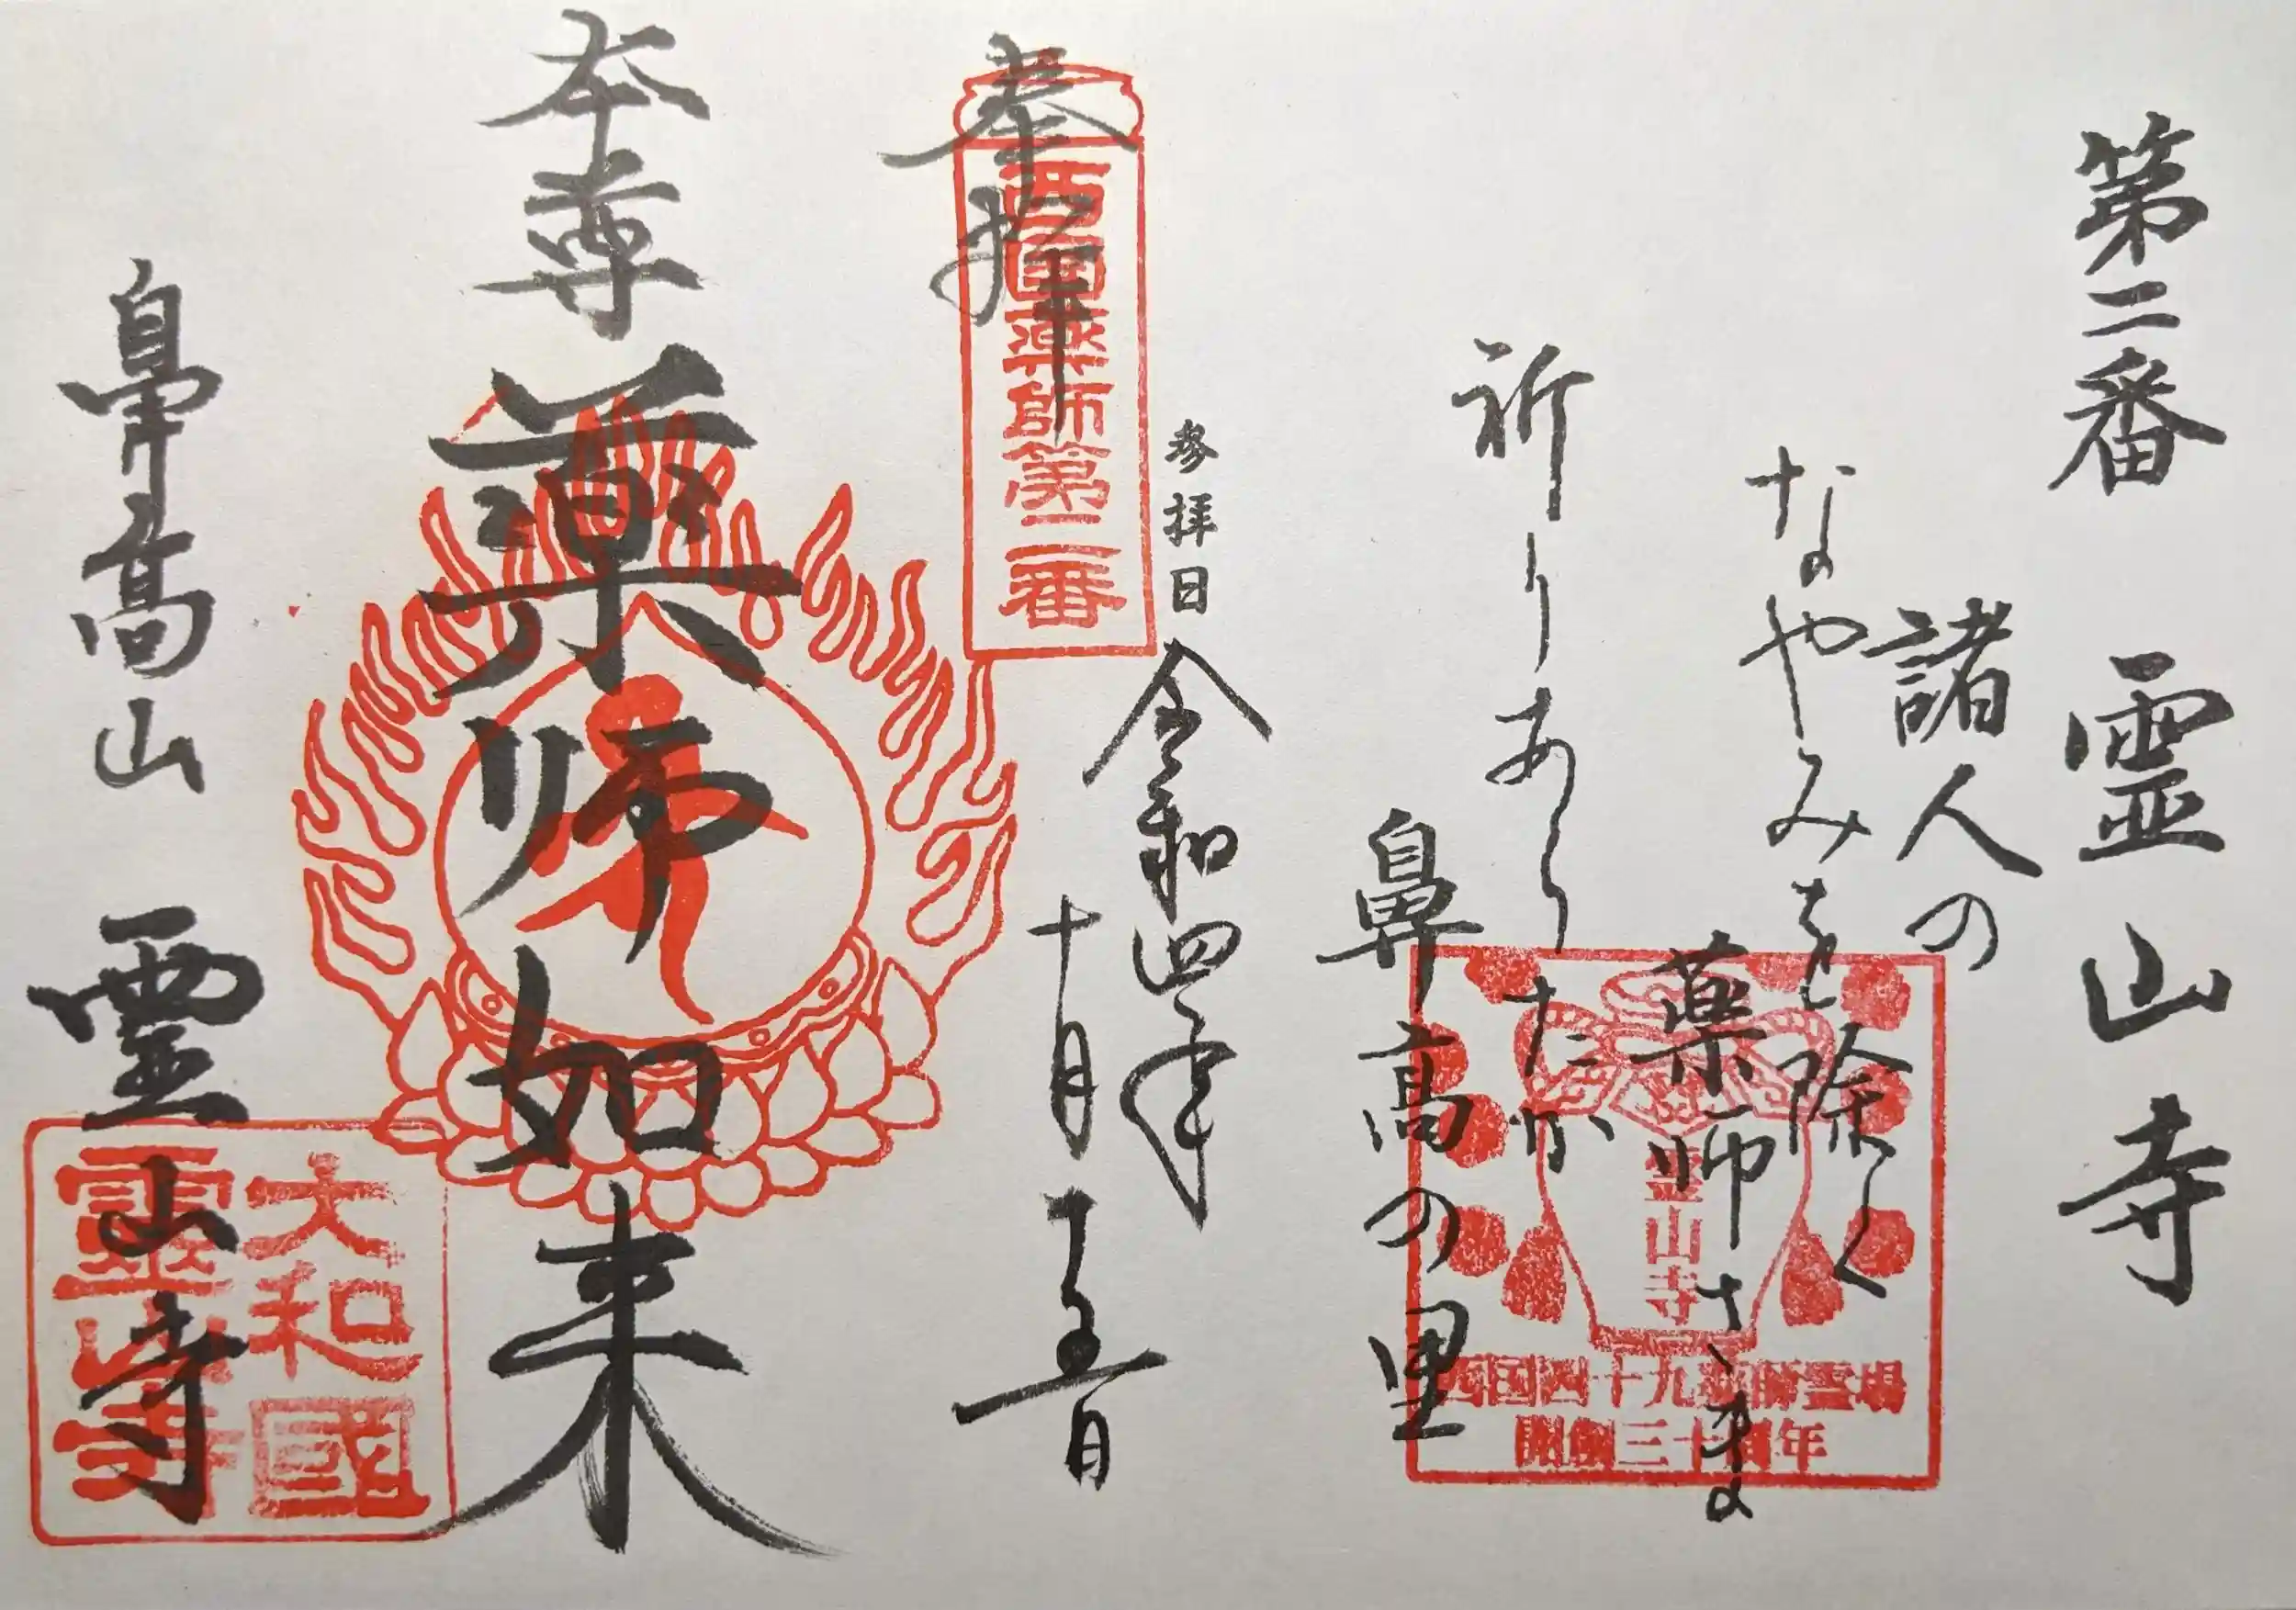 第二番 霊山寺
諸人の
なやみを除く
薬师さま
祈りあらたか
鼻高の里
霊山寺
西国四十九薬師霊場
開創三十周年
参拝日 令和四年
十月十五日
奉拝
西国薬師第二番
本尊 薬师如来
鼻高山 霊山寺
大和國
霊山寺